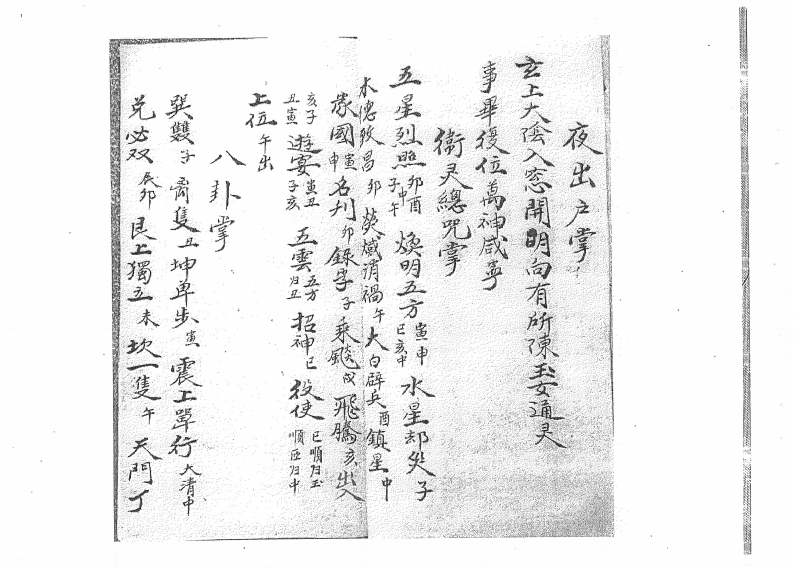 夜出户掌
玄上大陰入窓開明向有所陳玉女通灵
事畢復位萬神咸寧
衛灵總咒掌
五星烈照卯酉子中午煥明五方寅申巳亥中水星却災子
木德致昌卯熒惑消禍午太白辟兵酉鎮星中
家國寅申名刋卯錄字子乘飈戌飛騰亥出入
亥子丑寅遊宴寅丑子亥五雲五方归丑招神巳役使巳順归玉順逆归中
上位午出
八卦掌
巽雙子离隻丑坤单步寅震上單行大清中
兌必双辰卯艮上獨立未坎一隻午天門丁